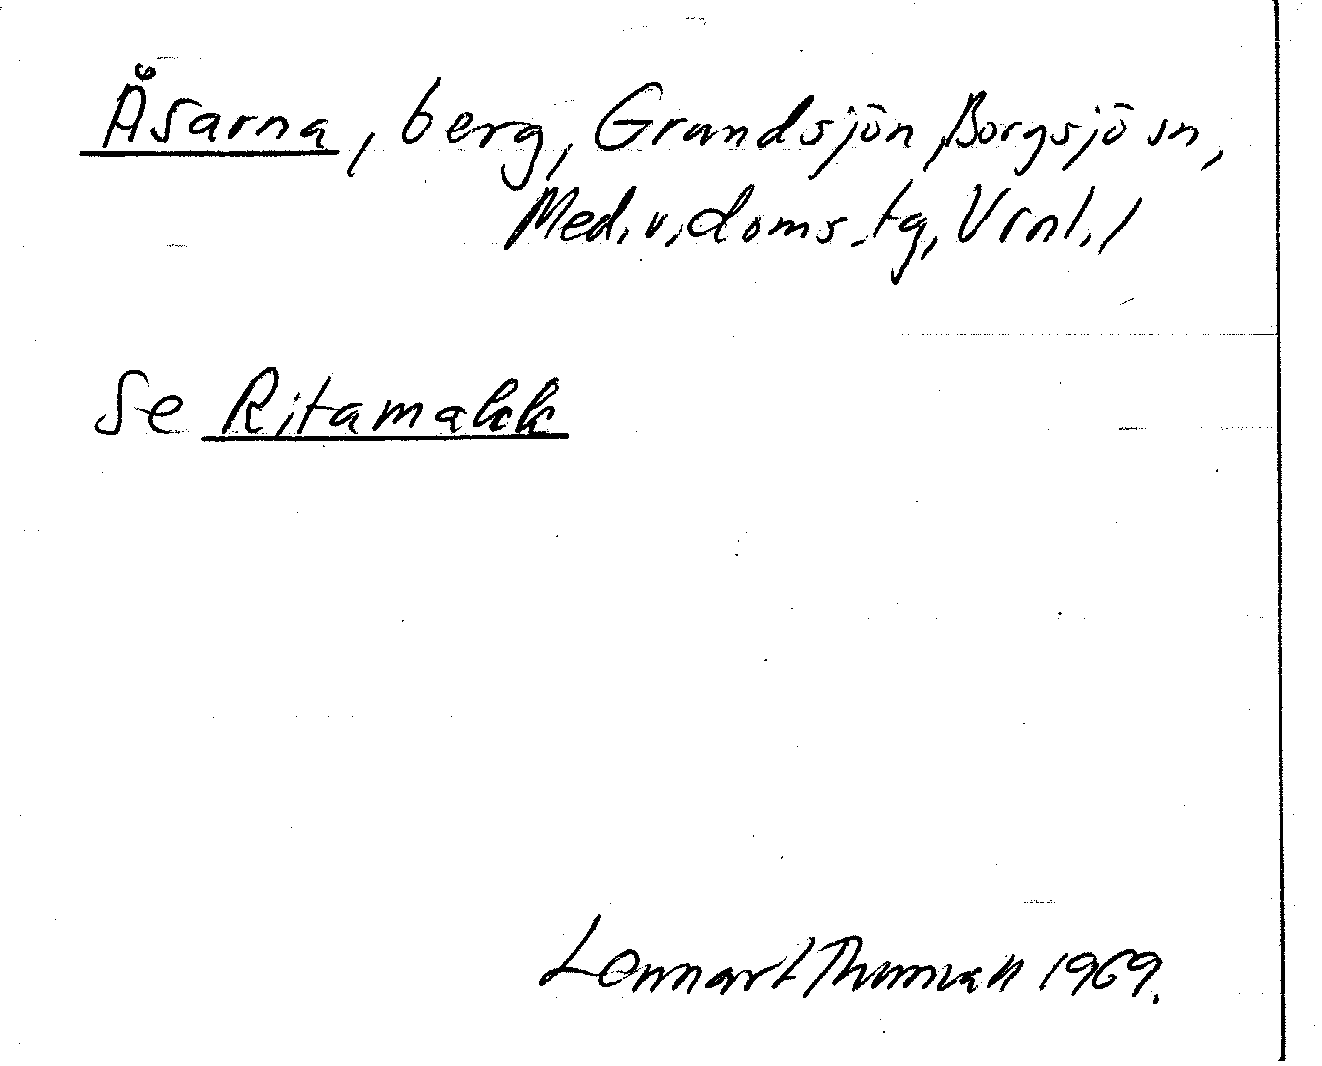 Åsarna, berg, Grandsjön, Borgsjö sn,
Med. v. doms. tg, Vrnl.,
Se Ritamakk
Lennart Thurvall 1969.